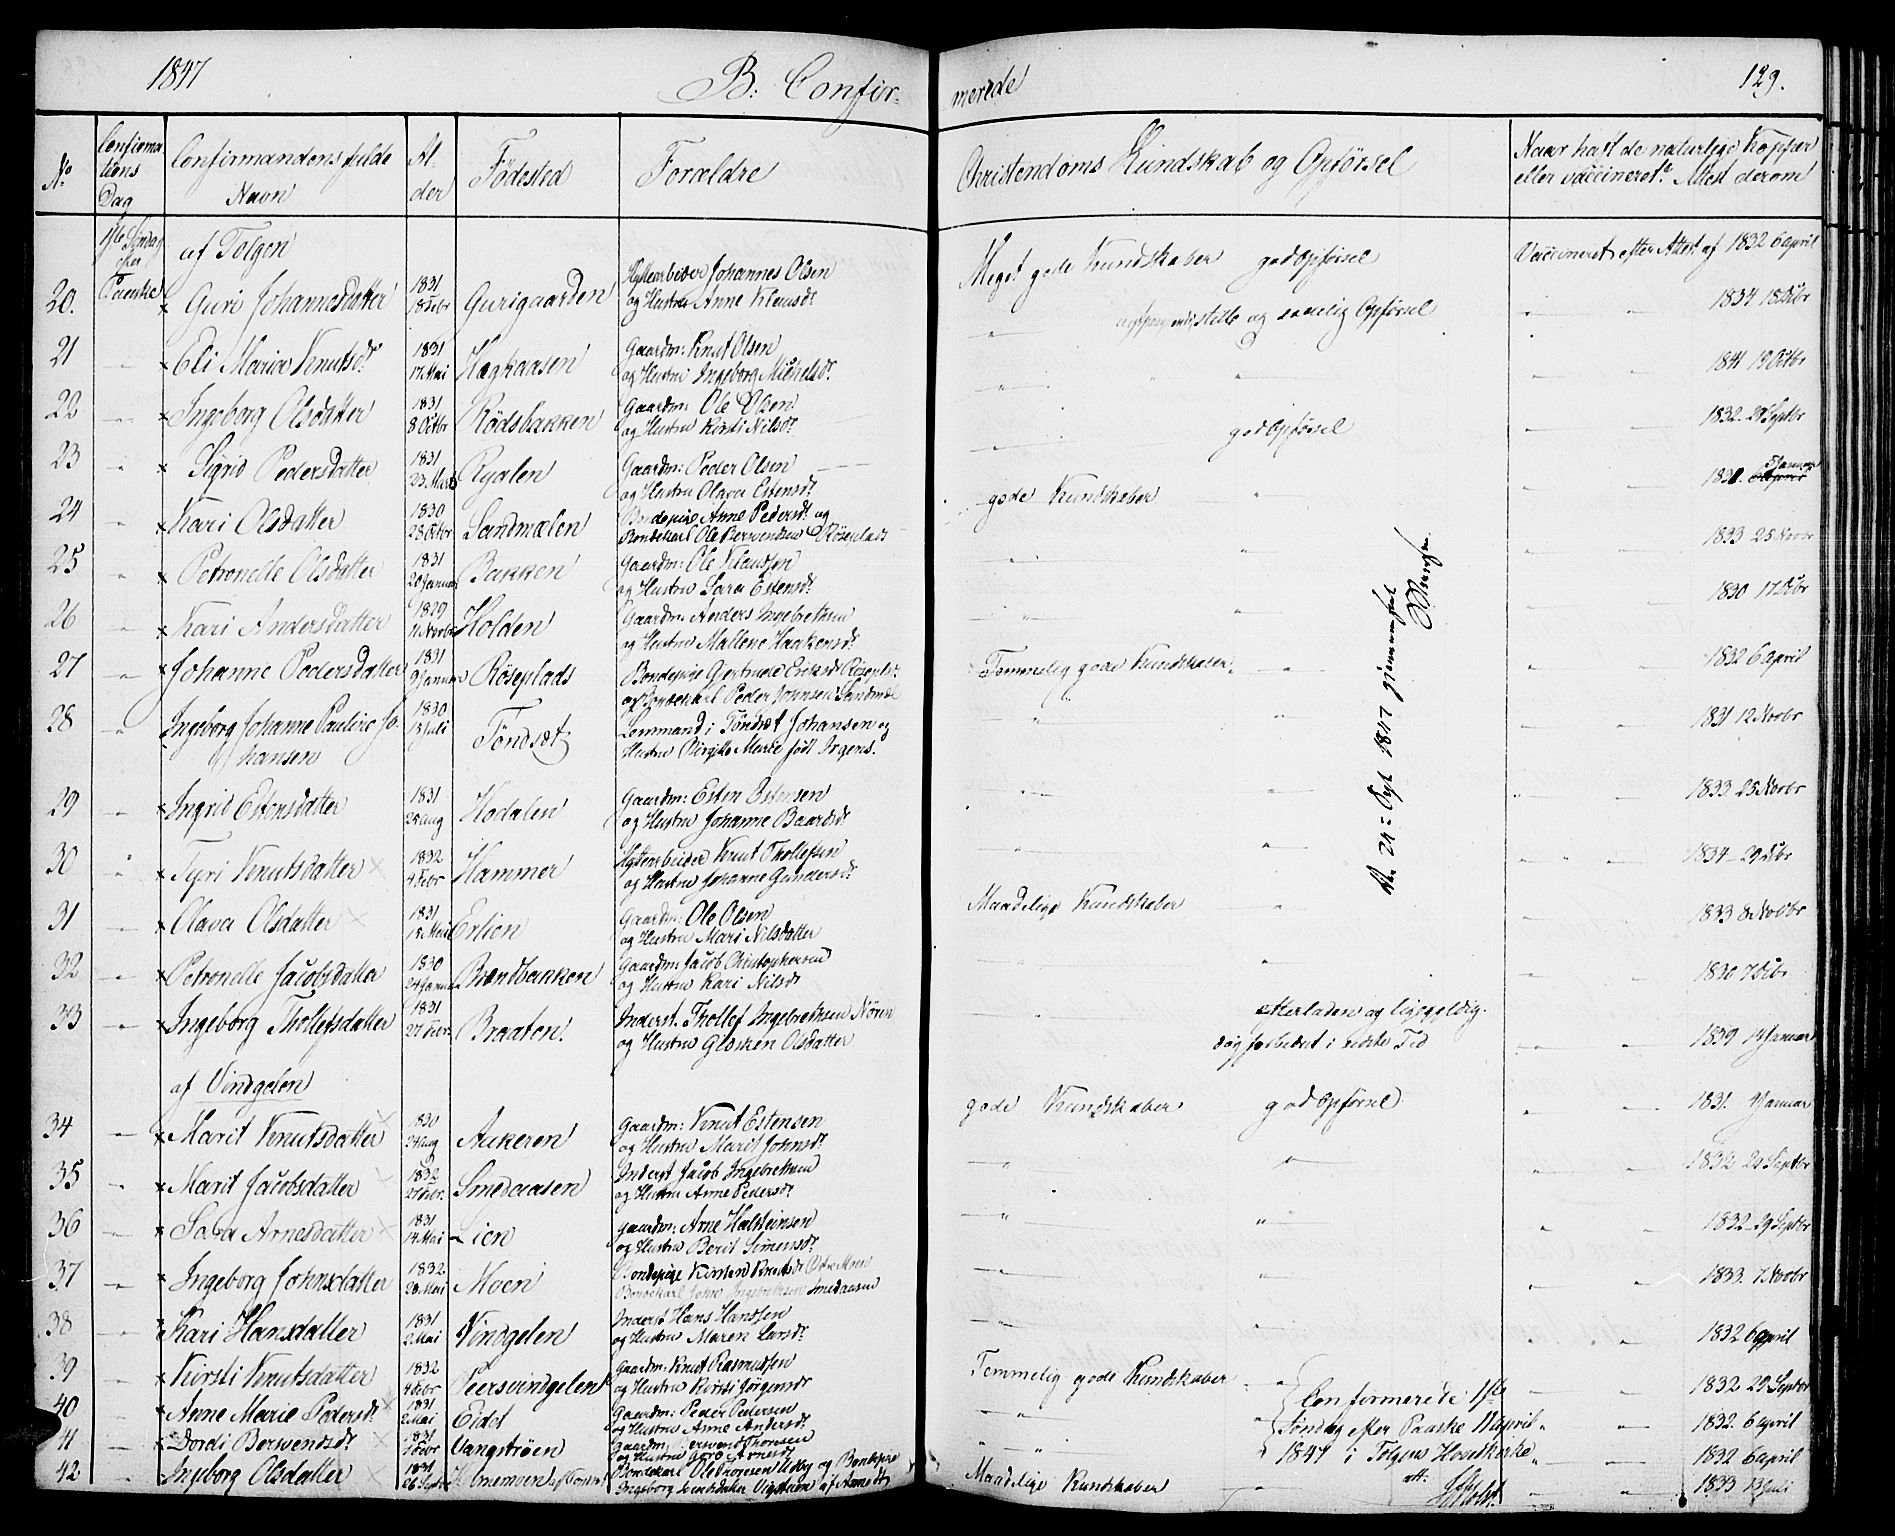 1847 B: Confir- merede 129.
No Confirmations Dag Confirmandens fulde Navn Alder Fødested Forældre Christendoms Kundskab og Opførsel Naar haft de naturlige Kopper eller vaccineret? Attest derom
1ste Søndag efter Paaske
af Tolgen
20. Guri Johannesdatter 1831 18 Febr Gurigaarden Hyttearbeider Johannes Olsen og Hustru Anne Klausdt Meget gode Kundskaber god Opførsel Vaccineret efter Attest af 1832 6 April
21 Eli Maria Knutsdt 1831 17 Mai Hagkaasen Gaardm: Knut Olsen og Hustru Ingeborg Michelsdt. og sædelig Opførsel 1834 18 Debr
22 Ingeborg Olsdatter 1831 8 Octbr Rödsbakken Gaardm: Ole Olsen og Hustru Kirsti Nilsdt 1841 19 Octbr
23 Sigrid Pedersdatter 1831 23 Marts Rydlen Gaardm: Peder Olsen og Hustru Olava Estensdt god Opførsel 1832 29 Septbr
24 Kari Olsdatter 1830 28 Octbr Sandmælen Bondepige Anne Pedersdt og Bondekarl Ole Berwendsen Röseplads gode Kundskaber 1831. Januar
25 Petronelle Olsdatter 1831 20 Januar Bakken Gaardm: Ole Klaussen og Hustru Sara Estensdt 1833 25 Novbr
26 Kari Andersdatter 1829 11 Novbr Holden Gaardm: Anders Ingebretsen og Hustru Mallene Haakensdt 1830 17 Debr
27 Johanne Pedersdatter 1831 9 Januar Röseplads Bondepige Gjertrude Eriksdt Röseplds og Bondekarl Peder Johnsen Sandmæl Temmelig gode Kundskaber 1832 6 April
28 Ingeborg Johanne Pauline Johansen 1830 13 Juli Töndsæt Lensmand i Töndsæt Johansen og Hustru Birgitte Marie født Irgens. 1831 12 Novbr
29 Ingrid Estensdatter 1831 25 Aug Hodalen Gaardm: Esten Estensen og Hustru Johanne Baardsdt 1833 25 Novbr
30 Tyri Knutsdatter 1832 4 Febr Hammer Hyttearbeider Knut Thollefsen og Hustru Johanne Gundersdt 1834 29 Debr
31 Olava Olsdatter 1831 15 Mai Erlien Gaardm: Ole Olsen og Hustru Mari Nilsdatter Maadelige Kundskaber 1833 8 Novbr
32 Petronelle Jacobsdatter 1830 24 Januar Brændbakken Gaardm: Jacob Christophersen og Hustru Kari Nilsdt 1830 7 Debr
33 Ingeborg Thollefsdatter 1831 27 Febr. Braaten Inderst. Thollef Ingebretsen Nören og Hustru Glöshen Olsdatter efterladen og ligegyldig. dog forbedret i sidste Tid 1839 14 Januar
af Vindgelen
34 Marit Knutsdatter 1830 24 Aug Aukeren Gaardm: Knut Estensen og Hustru Marit Johnsdt gode Kundskaber god Opførsel 1831. 4 Januar
35 Marit Jacobsdatter 1832 27 Febr. Smedaasen Inderst Jacob Ingebretsen og Hustru Anne Pedersdt 1832 29 Septbr
36 Sara Arnesdatter 1831 14 Mai Lien Gaardm: Arne Halsteinsen og Hustru Berit Simensdt 1832 29 Septbr
37 Ingeborg Johnsdatter 1832 28 Mai Moen Bondepige Kirsten Bendtsdt Östre Moen Bondekarl John Ingebretsen Smedaasen 1833. 7 Novbr
38 Kari Hansdatter 1831 2 Mai Vindgelen Inderst Hans Hansen og Hustru Maren Larsdt 1832 6 April
39 Kirsti Knutsdatter 1832 4 Febr Peersvindgelen Gaardm: Knut Rasmussen og Hustru Kirsti Jörgensdt Temmelig gode Kundskaber 1832 29 Septbr
40 Anne Marie Pedersdt 1831 2 Mai Eidet Gaardm: Peder Pedersen og Hustru Anne Andersdt 1832. 6 April
41 Dordi Berwendsdt 1831 Febr Vangströen Gaardm: Berwend Thoresen og Hustru Arnesdt 1832 6 April
42 Ingeborg Olsdatter 1831 26 Septbr Bondekarl Ole Thoresen Udby og Bondepige Ingeborg Maadelige Kundskaber 1833 13 Juli
Confirmerede 1ste Søndag efter Paaske 11 April 1847 i Tolgens Hovedkirke
att: Holst.
Den 24de Sept. 1847 gjennemseet